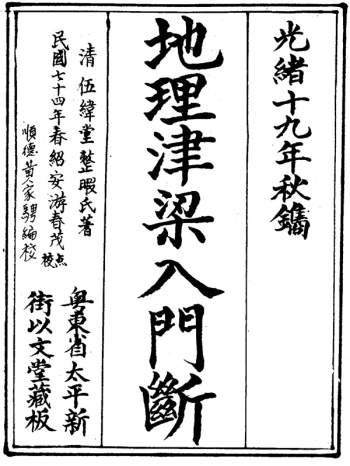 光緒十九年秋鐫
地理津梁入門斷
清 伍緯堂整暇氏著
民國七十四年春紹安游春茂点校
順德黃家騁編校
粵東省太平新
街以文堂藏板